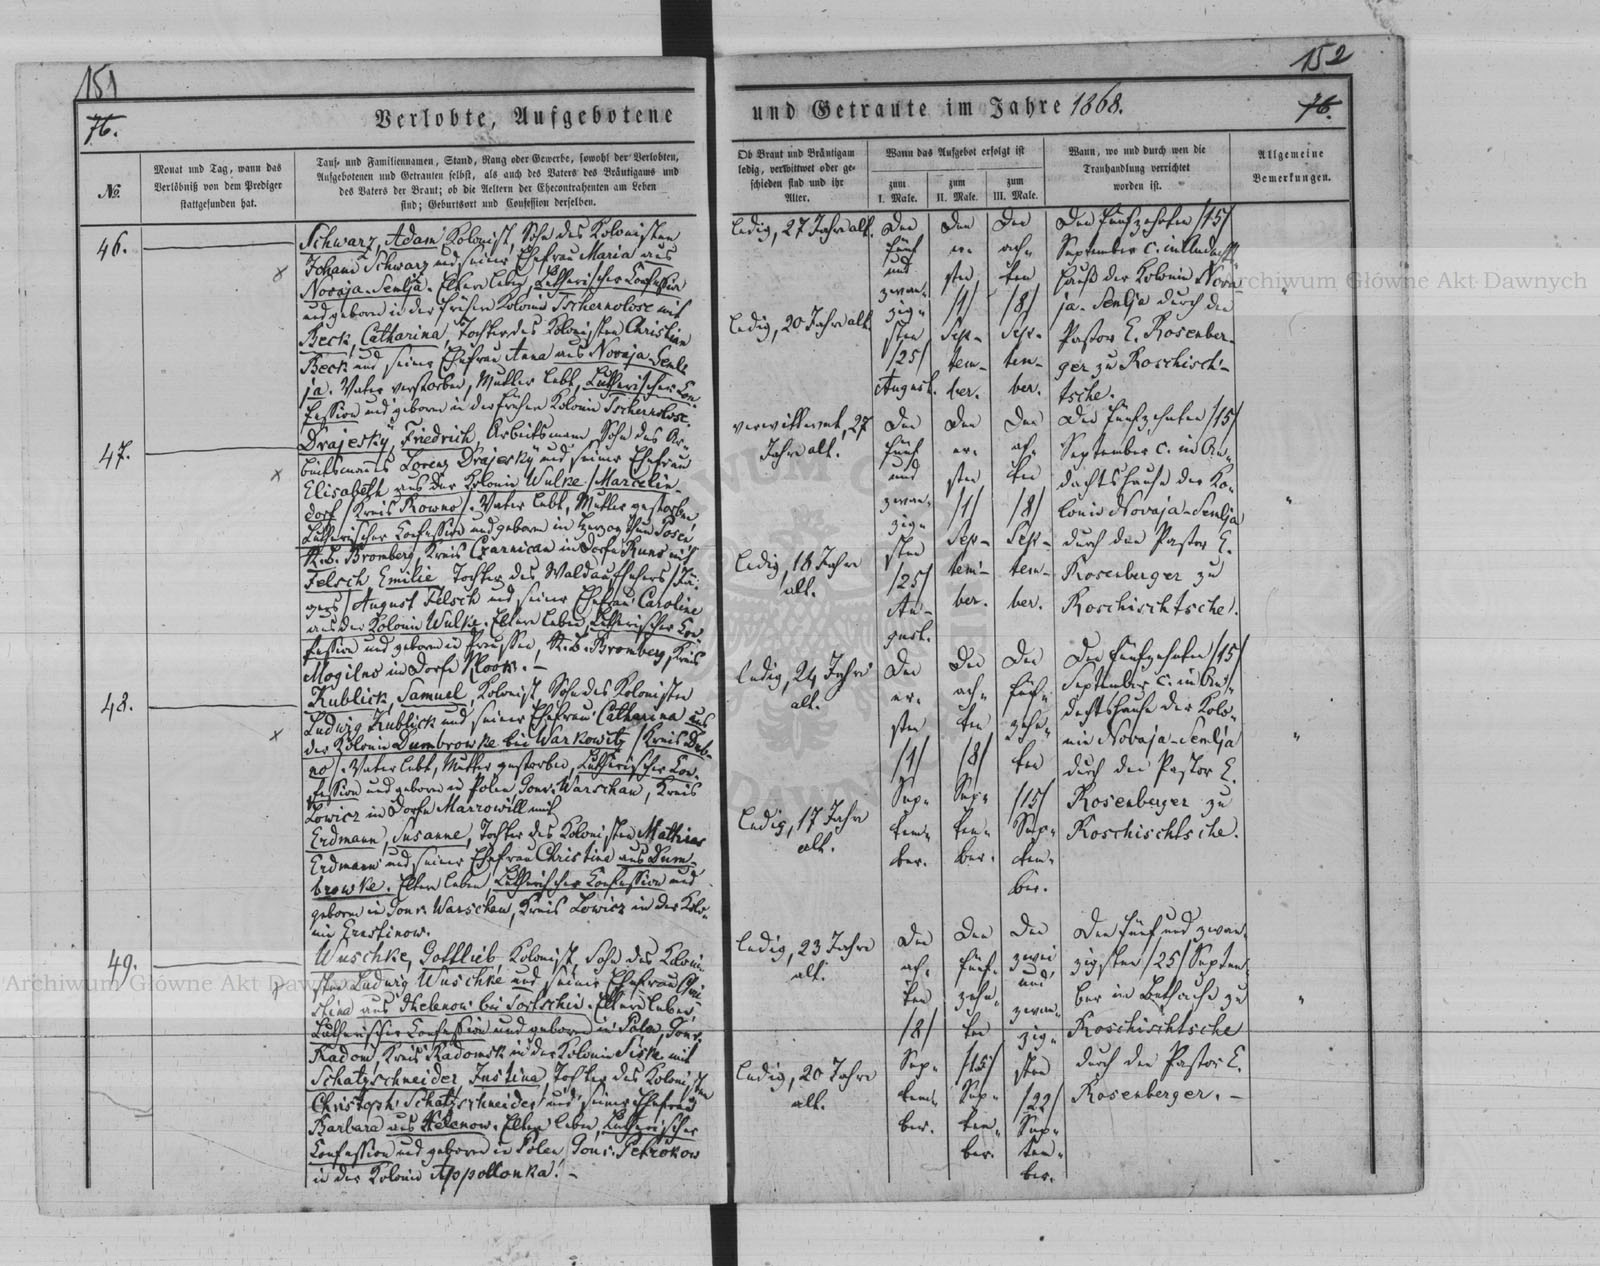 151
76.
Verlobte, Aufgebotene
№.
Monat und Tag, wann das
Verlöbniß von dem Prediger
stattgefunden hat.
Tauf- und Familiennamen, Stand, Rang oder Gewerbe, sowohl der Verlobten,
Aufgebotenen und Getrauten selbst, als auch des Vaters des Bräutigams und
des Vaters der Braut; ob die Aeltern der Ehecontrahenten am Leben
sind; Geburtsort und Confession derselben.
46.
Schwarz, Adam Kolonist, Sohn des Kolonisten
Johann Schwarz und seiner Ehefrau Maria aus
Novaja-Semlja. Eltern leben, Lutherischer Confession
und geboren in der frühern Kolonie Tschernolose mit
Beck, Catharina, Tochter des Kolonisten Christian
Beck und seiner Ehefrau Anna aus Novaja-Seml-
ja. Vater verstorben, Mutter lebt, Lutherischer Con-
fession und geboren in der frühern Kolonie Tschernolose.
47.
Drajesky, Friedrich, Arbeitsmann, Sohn des Ar-
beitsmanns Lorenz Drajesky und seiner Ehefrau
Elisabeth aus der Kolonie Wulke /Marcelin-
dorf/ Kreis Rowno/. Vater lebt, Mutter gestorben,
Lutherischer Confession und geboren in Herzogthum Posen
R. B. Bromberg, Kreis Czarnican in Dorfe Runo mit
Felsch Emilie, Tochter des Waldaufsehers /Jä-
gers/ August Felsch und seiner Ehefrau Caroline
aus der Kolonie Wulke. Eltern leben, Lutherischer Con-
fession und geboren in Preussen, R. B. Bromberg, Kreis
Mogilno in Dorfe Kloor. –
48.
Kublick, Samuel, Kolonist, Sohn des Kolonisten
Ludwig Kublick und seiner Ehefrau Catharina aus
der Kolonie Dumbrowke bei Warkowitz /Kreis Dub-
no/. Vater lebt, Mutter gestorben, Lutherischer Con-
fession und geboren in Polen, Gouv. Warschau, Kreis
Lowicz in Dorfe Marrowill mit
Erdmann, Susanne, Tochter des Kolonisten Mathias
Erdmann und seiner Ehefrau Christine aus Dum-
browke. Eltern leben, Lutherischer Confession und
geboren in Gouv. Warschau, Kreis Lowicz in der Kolo-
nie Ernstinow.
49.
Wuschke, Gottlieb, Kolonist, Sohn des Koloni-
sten Ludwig Wuschke und seiner Ehefrau Chri-
stina aus Helenow bei Tortschin. Eltern leben,
Lutherischer Confession und geboren in Polen, Gouv.
Radom, Kreis Radomsk in der Kolonie Siske mit
Schatzschneider, Justina, Tochter des Kolonisten
Christoph Schatzschneider und seiner Ehefrau
Barbara aus Helenow. Eltern leben, Lutherischer
Confession und geboren in Polen, Gouv. Petrokow
in der Kolonie Appollonka. –
152
76.
und Getraute im Jahre 1868.
Ob Braut und Bräutigam
ledig, verwittwet oder ge-
schieden sind und ihr
Alter.
Wann das Aufgebot erfolgt ist
zum
I. Male.
zum
II. Male.
zum
III. Male.
Wann, wo und durch wen die
Trauhandlung verrichtet
worden ist.
Allgemeine
Bemerkungen.
ledig, 27 Jahre alt.
ledig, 20 Jahre alt.
Den
fünf
und
zwan-
zig-
sten
/25/
August.
Den
er-
sten
/1/
Sep-
tem-
ber.
Den
ach-
ten
/8/
Sep-
tem-
ber.
Den fünfzehnten /15/
September c. im Andachts-
hause der Kolonie Nova-
ja-Semlja durch den
Pastor E. Rosenber-
ger zu Roschisch-
tsche.
"
verwittwet, 27
Jahre alt.
ledig, 18 Jahre
alt.
Den
fünf
und
zwan-
zig-
sten
/25/
Au-
gust.
Den
er-
sten
/1/
Sep-
tem-
ber.
Den
ach-
ten
/8/
Sep-
tem-
ber.
Den fünfzehnten /15/
September c. im An-
dachtshause der Ko-
lonie Novaja-Semlja
durch den Pastor E.
Rosenberger zu
Roschischtsche.
"
ledig, 24 Jahre
alt.
ledig, 17 Jahre
alt.
Den
er-
sten
/1/
Sep-
tem-
ber.
Den
ach-
ten
/8/
Sep-
tem-
ber.
Den
fünf-
zehn-
ten
/15/
Sep-
tem-
ber.
Den fünfzehnten /15/
September c. im An-
dachtshause der Kolo-
nie Novaja-Semlja
durch den Pastor E.
Rosenberger zu
Roschischtsche.
"
ledig, 23 Jahre
alt.
ledig, 20 Jahre
alt.
Den
ach-
ten
/8/
Sep-
tem-
ber.
Den
fünf-
zehn-
ten
/15/
Sep-
tem-
ber.
Den
zwei
und
zwan-
zig-
sten
/22/
Sep-
tem-
ber.
Den fünf und zwan-
zigsten /25/ Septem-
ber im Bethause zu
Roschischtsche
durch den Pastor E.
Rosenberger. –
"
Archiwum Główne Akt Dawnych
Archiwum Główne Akt Dawnych